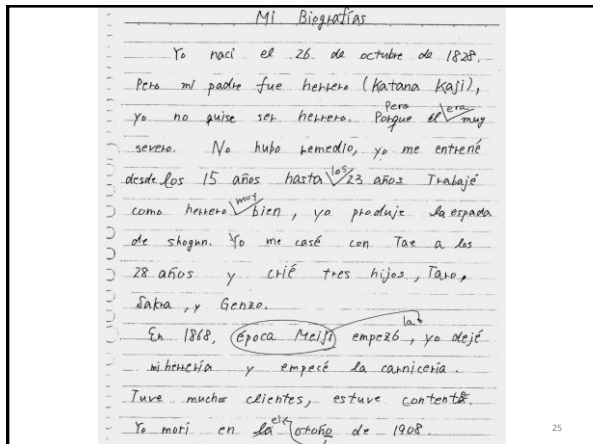 Mi Biografías
Yo naci el 26 de octubre de 1828.
Pero mi padre fue herrero (Katana Kaji),
yo no quise ser herrero. Pero Porque él era muy
severo. No hubo remedio, yo me entrené
desde los 15 años hasta los 23 años. Trabajé
como herrero muy bien, yo produje la espada
de shogun. Yo me casé con Tae a los
28 años y crié tres hijos, Taro,
Sakra, y Genzo.
En 1868, época Meiji empezó la, yo dejé
mi herrería y empecé la carnicería.
Tuve muchos clientes, estuve contento.
Yo morí en la el otoño de 1908.
25